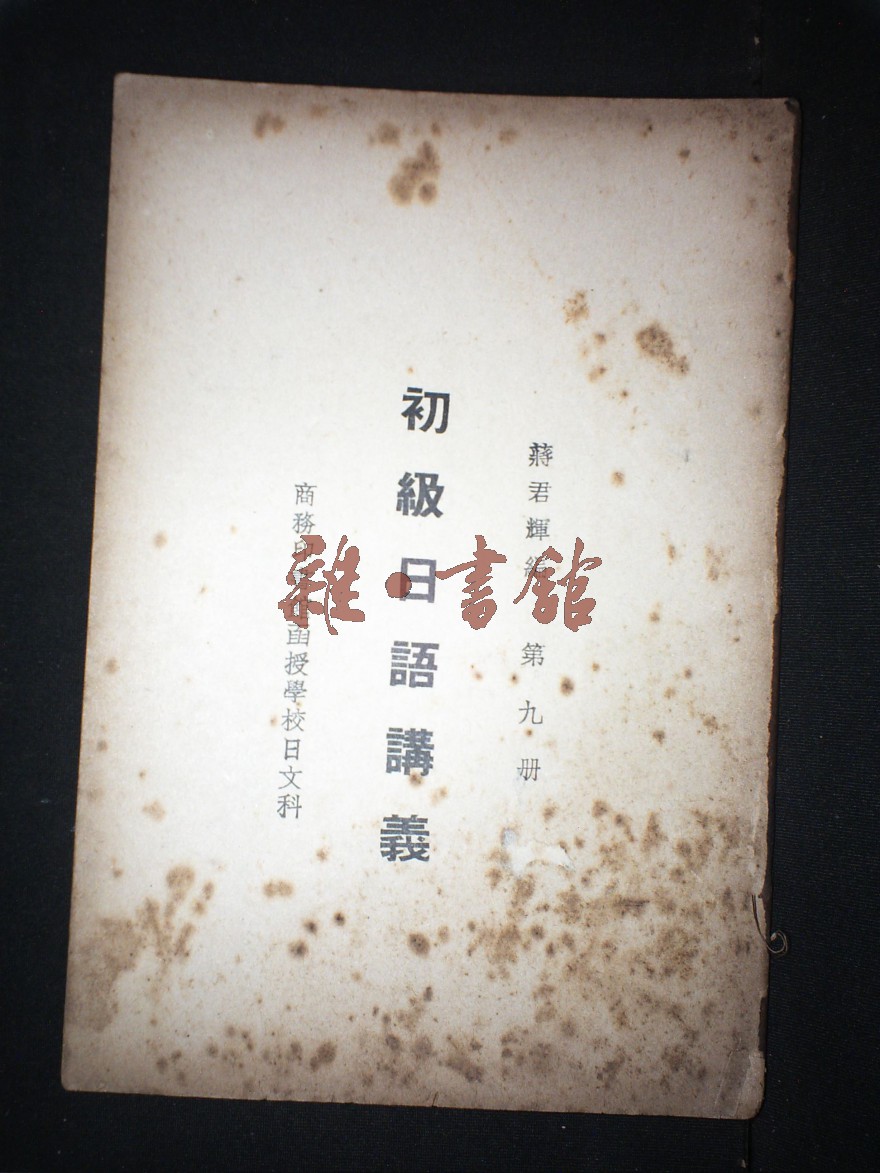 蔣君輝編 第九册
初級日語講義
商務印書館函授學校日文科
雜·書館